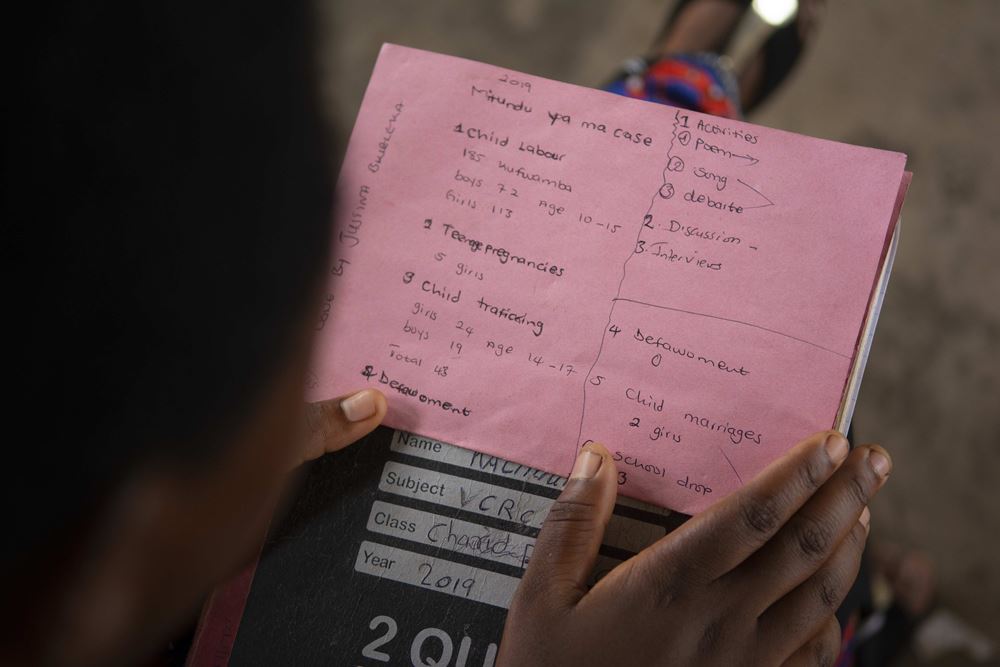 2019
Mitundu ya ma case
1 Child Labour
185 kufwamba
boys 72
Girls 113
Age 10-15
2 Teenge pregnancies
5 girls
3 Child traficking
girls 24
boys 19
Age 14-17
Total 43
Defawoment
1 Activities
1 Poem
2 Song
3 debaite
2. Discussion -
3. Interviews
4 Defawoment
0
5 Child marriages
2 girls
School drop
3
By JUSTINA
Name
Subject VCRC
Class
Year 2019
2 QU